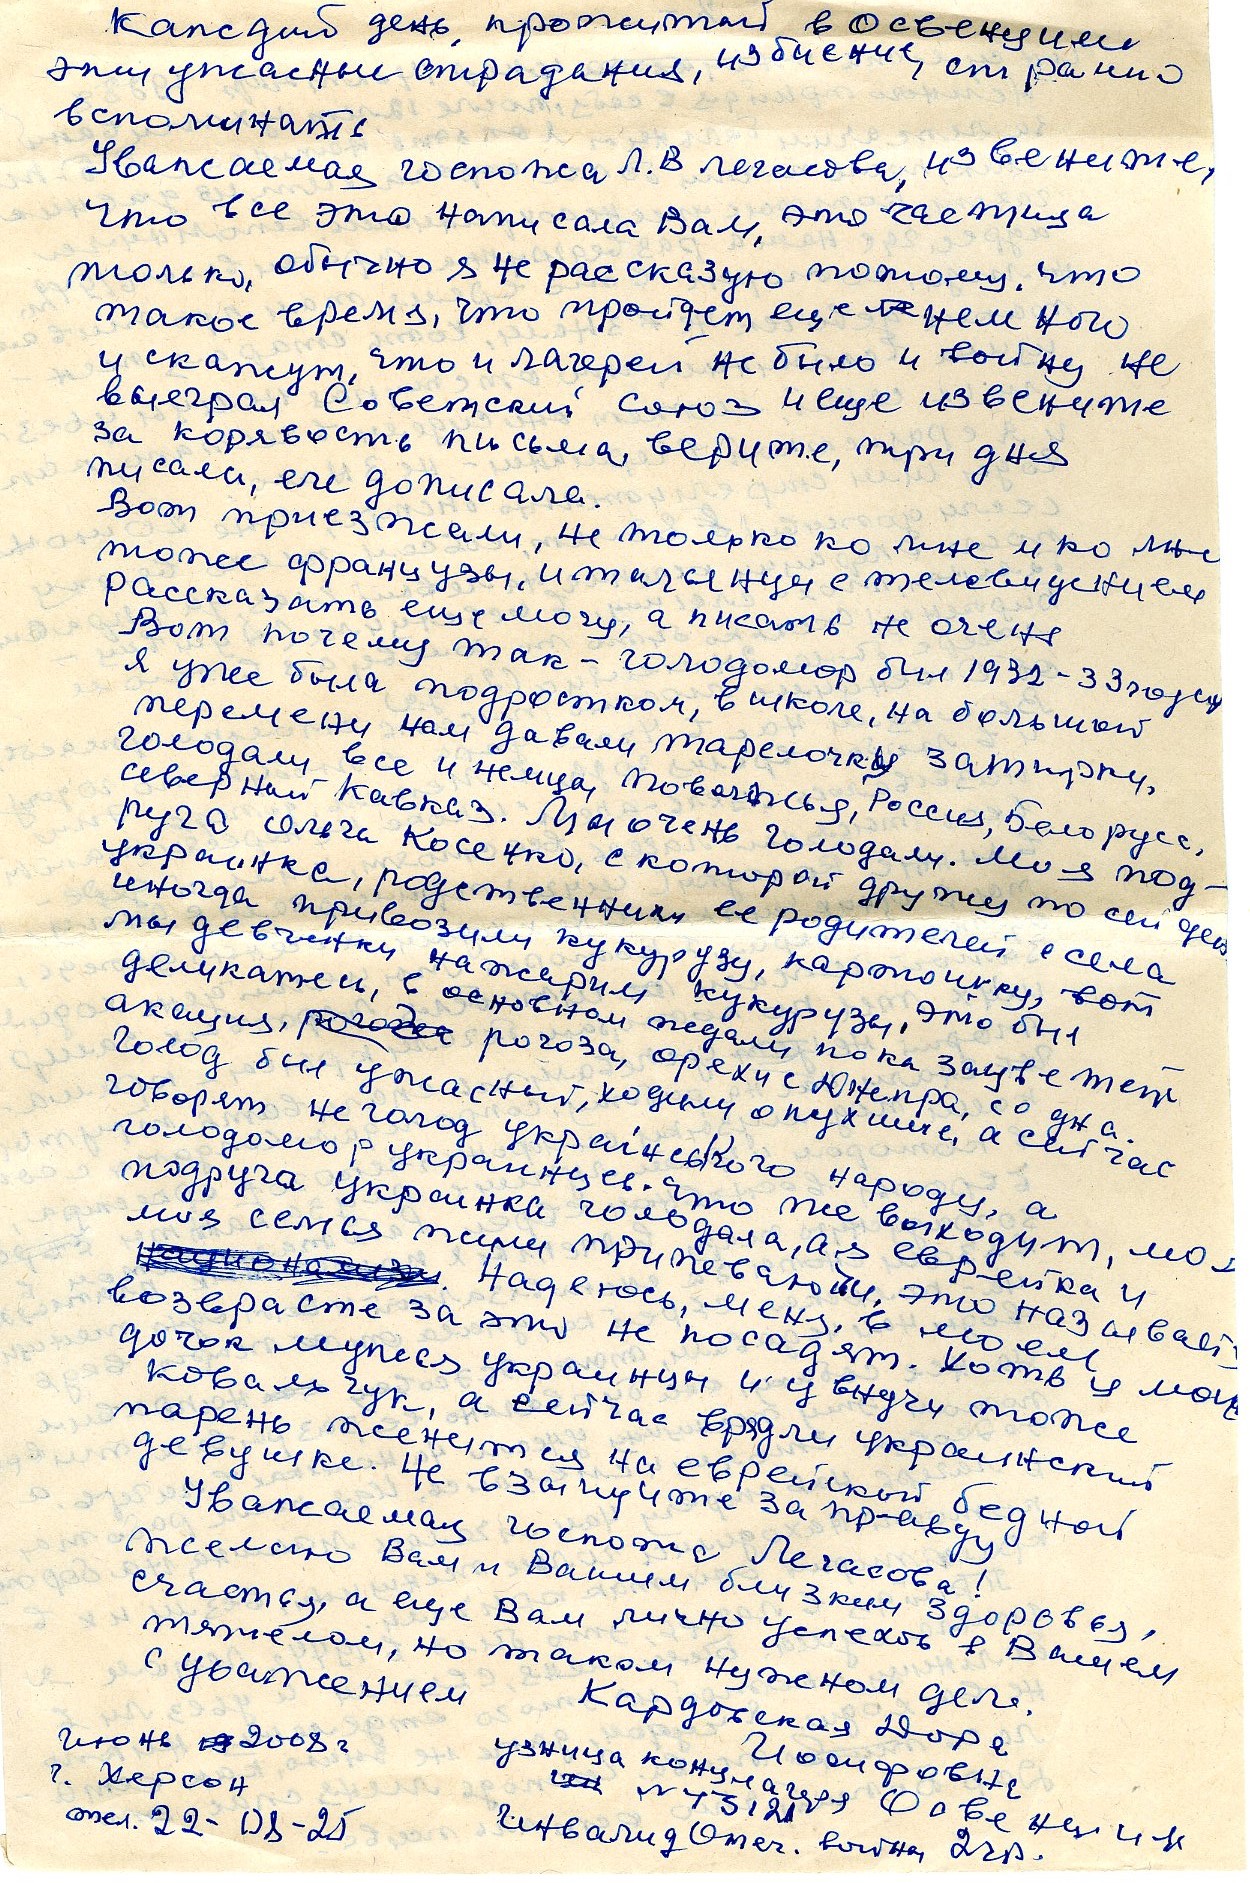 Каждый день, прожитый в Освенциме
эти ужасные страдания, избиение, странно
вспоминать
Уважаемая госпожа Л.В Легасова, извените,
что все это написала Вам, это частица
только, обычно я не рассказую потому, что
такое время, что пройдет еще немного
и скажут, что и лагерей не было и войну не
выеграл Советский союз и еще извените
за корявость письма, верите, три дня
писала, еле дописала.
Вот приезжали, не только ко мне и ко мне
тоже французы, итальянци с телевидением
рассказать еще могу, а писать не очень
Вот почему так - голодомор был 1932-33 годы
я уже была подростком, в школе, на большой
перемени нам давали тарелочку затирки,
голодали все и немца, поволжья, Россия, Белорусс,
северный Кавказ. Мы очень голодали. Моя под-
руга Ольга Косенко, с которой дружу по сей день
украинка, родственники ее родителей с села
иногда привозили кукурузу, картошку, вот
мы девченки нажарили кукурузы, это был
деликатес, в основном ждали пока зацветет
акация, рогоза, орехи с Днепра, со дна.
Голод был ужасный, ходили опухшие, а сейчас
говорят не голод українського народу, а
голодомор украинцев. Что же выходит, моя
подруга украинка голодала, а я еврейка и
моя семья жили припеваючи, это называеть
. Надеюсь, меня, в моем
возврасте за это не посадят. Хоть и моих
дочок мужья украинцы и у внучи тоже
Ковальчук, а сейчас врядли украинский
парень женится на еврейской бедной
девушке. Не взащите за правду
Уважаемая госпожа Легасова!
Желаю Вам и Вашим близким здоровья,
счастья, а еще Вам лично успехов в Вашем
тяжёлом, но таком нужном деле.
с уважением Кардовская Дора
Иосифовна
Июнь 2008 г узница концлагеря Освенцим
г. Херсон
тел. 22-08-25 Инвалид Отеч. войны 2 гр.